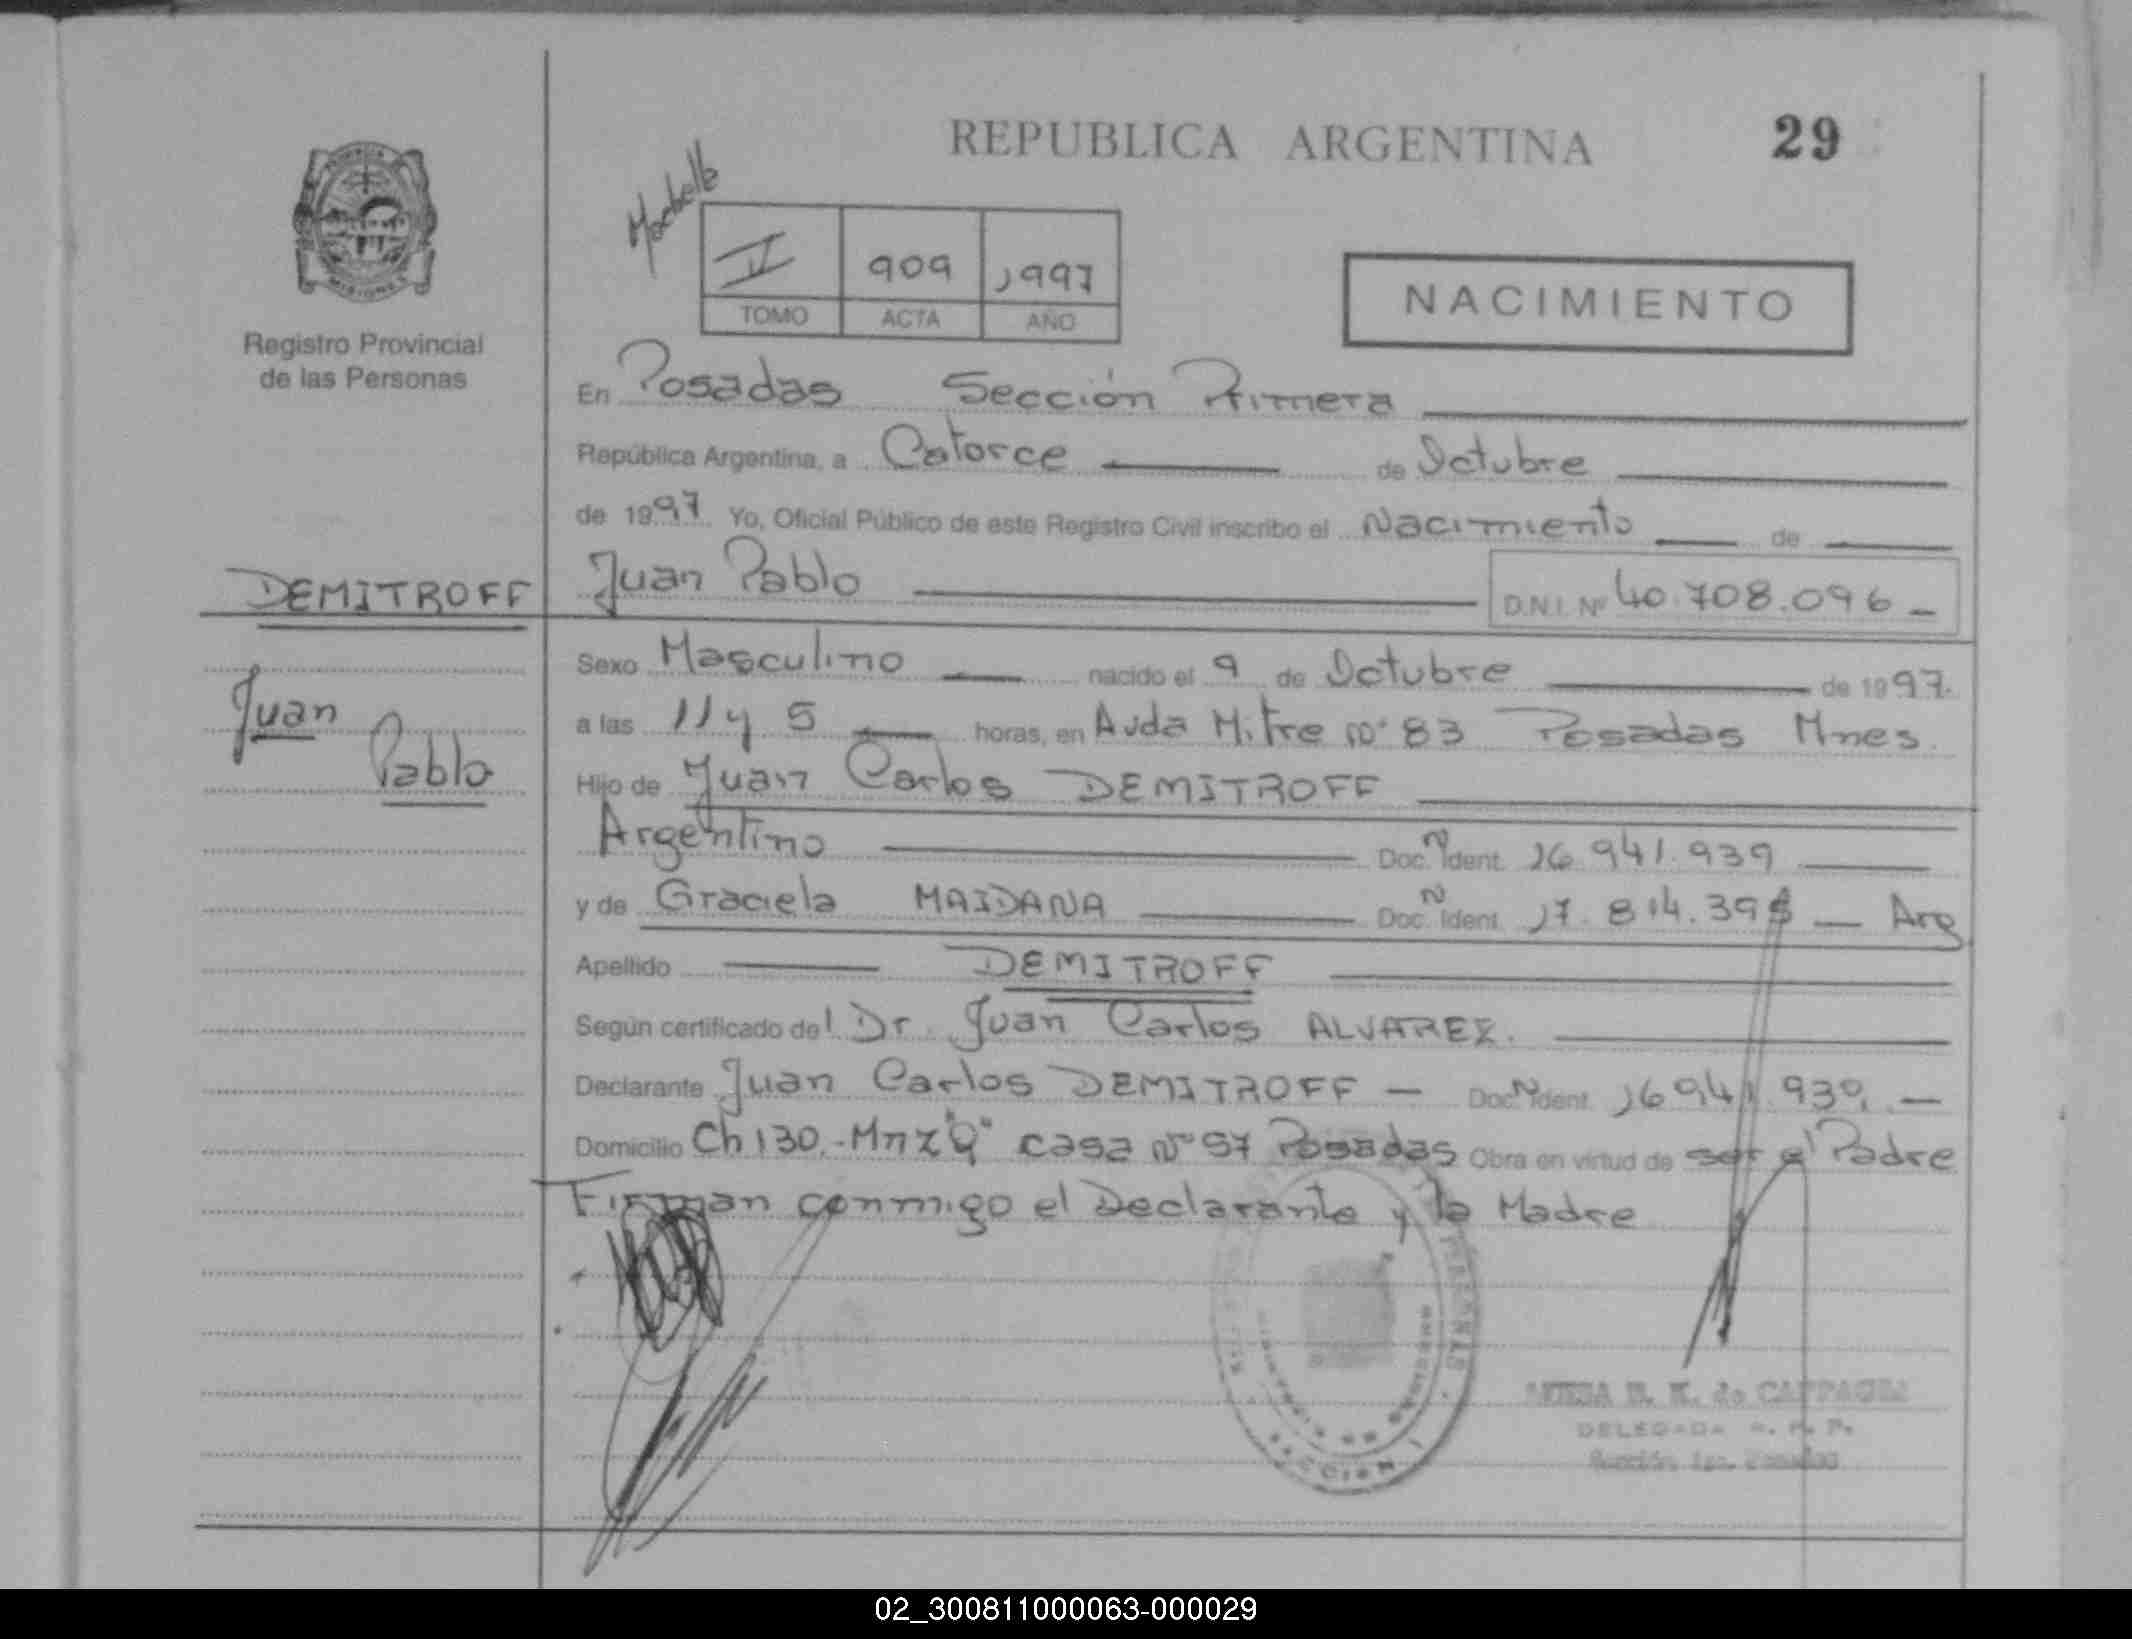 REPUBLICA ARGENTINA 29
MISIONES
Registro Provincial
de las Personas
II 909 1997
TOMO ACTA AÑO
NACIMIENTO
En Posadas Sección Primera
República Argentina, a Catorce de Octubre
de 1997 Yo, Oficial Público de este Registro Civil inscribo el Nacimiento de
DEMITROFF Juan Pablo D.N.I. Nº 40.708.096
Sexo Masculino nacido el 9 de Octubre de 1997.
Juan a las 11 y 5 horas, en Avda Mitre nº 83 Posadas Mnes.
Pablo Hijo de Juan Carlos DEMITROFF
Argentino Doc. N Ident. 16.941.939
y de Graciela MAIDANA Doc. N Ident. 17.814.39 Arg
Apellido DEMITROFF
Según certificado del Dr. Juan Carlos ALVAREZ.
Declarante Juan Carlos DEMITROFF - Doc. N Ident. 16.941.939. -
Domicilio Ch 130.- Mnz "Q" casa Nº 57 Posadas Obra en virtud de ser el Padre
Firman conmigo el Declarante y la Madre
SECCION 1
DELEGADA R. P. P.
Sección 1ra. Posadas
02_300811000063-000029